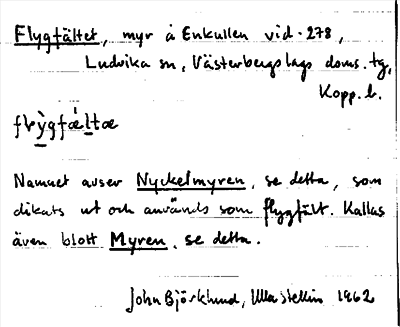 Flygfältet, myr å Enkullen vid. 278,
Ludvika sn, Västerbergslags doms. tg,
Kopp. l.
flỳgfæ̀ltæ
Namnet avser Nyckelmyren, se detta, som
dikats ut och används som flygfält. Kallas
även blott Myren, se detta.
John Björklund, Ulla Stellin 1962